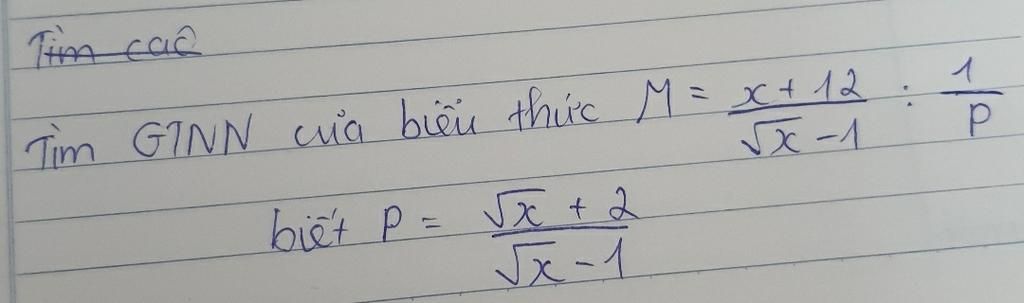 Tìm các
Tìm GTNN của biểu thức M = \frac{x+12}{\sqrt{x}-1} : \frac{1}{P}
biết P = \frac{\sqrt{x}+2}{\sqrt{x}-1}